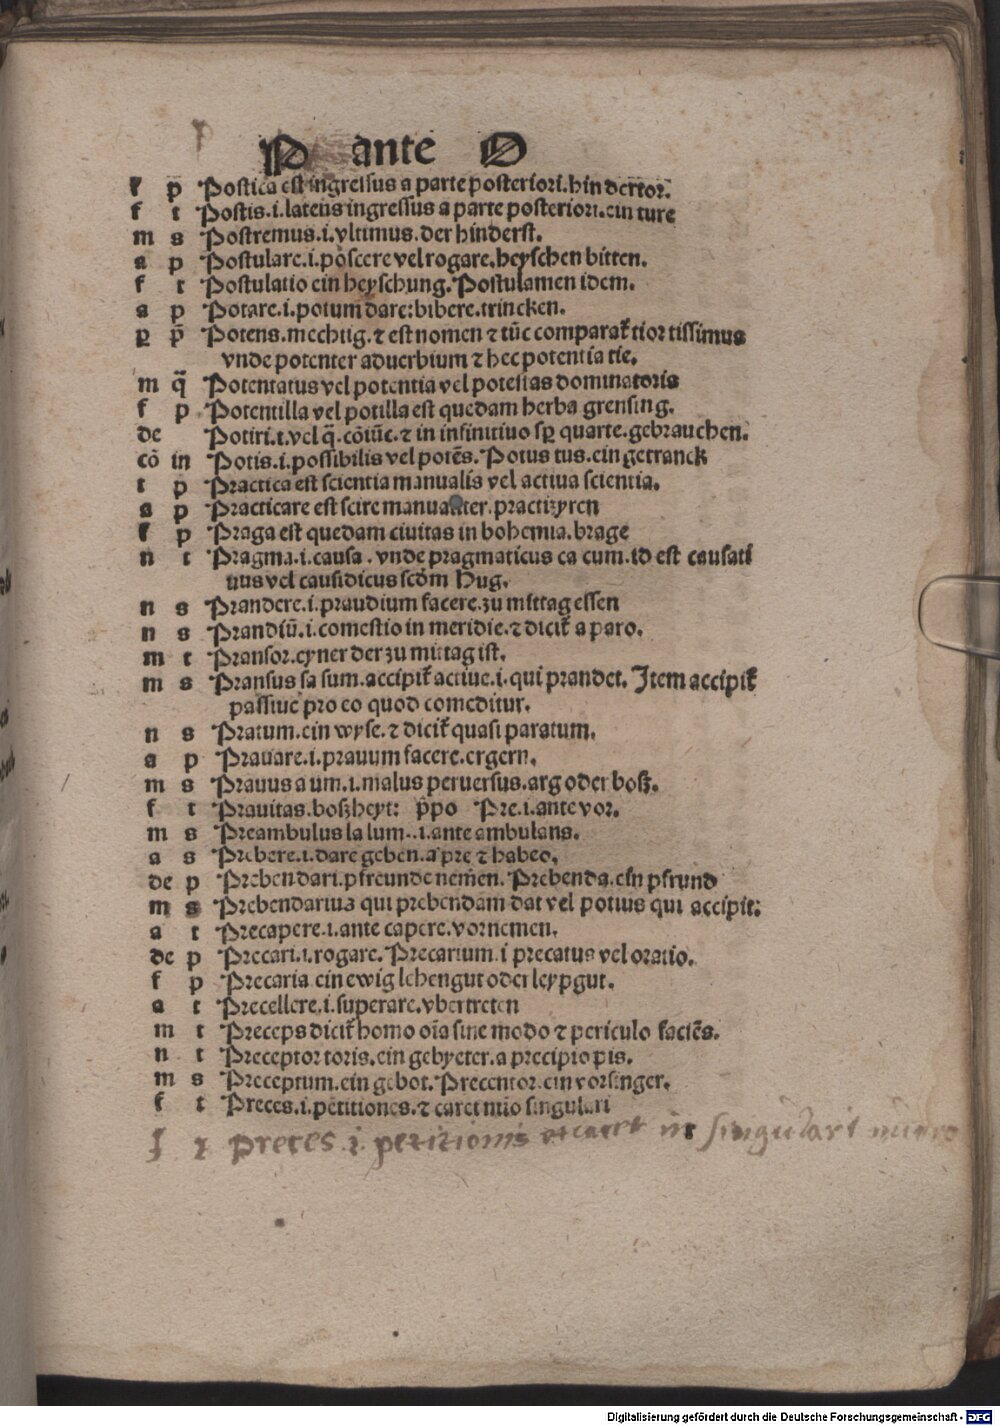 P ante O
f p Postica est ingressus a parte posteriori. hindertor.
f t Postis .i. latens ingressus a parte posteriori. ein ture
m s Postremus .i. vltimus. der hinderst.
a p Postulare .i. poscere vel rogare. heyschen bitten.
f t Postulatio ein heyschung. Postulamen idem.
a p Potare .i. potum dare: bibere. trincken.
p̲ p̄ Potens. mechtig. ⁊ est nomen ⁊ tūc comparat᷑ tior tissimus
vnde potenter aduerbium ⁊ hec potentia tie.
m q̄ Potentatus vel potentia vel potestas dominatoris
f p Potentilla vel potilla est quedam herba grensing.
de Potiri. t. vel q̄. cōiūc. ⁊ in infinitiuo sp̲ quarte. gebrauchen.
cō in Potis .i. possibilis vel potēs. Potus tus. ein getranck
t p Practica est scientia manualis vel actiua scientia.
a p Practicare est scire manualiter. practizyren
f p Praga est quedam ciuitas in bohemia. brage
n t Pragma .i. causa. vnde pragmaticus ca cum. id est causati
uus vel causidicus scd̄m Hug.
n s Prandere .i. praudium facere. zu mittag essen
n s Prandiū .i. comestio in meridie. ⁊ dicit᷑ a paro.
m t Pransor. eyner der zu mittag ist.
m s Pransus sa sum. accipit᷑ actiue .i. qui prandet. Item accipit᷑
passiue pro eo quod comeditur.
n s Pratum. ein wyse. ⁊ dicit᷑ quasi paratum.
a p Prauare .i. prauum facere. ergern.
m s Prauus a um .i. malus peruersus. arg oder boß.
f t Prauitas. boßheyt: p̄po Pre .i. ante vor.
m s Preambulus la lum .i. ante ambulans.
a s Prebere .i. dare geben. a pre ⁊ habeo.
de p Prebendari. pfreunde nemen. Prebenda. ein pfrund
m s Prebendarius qui prebendam dat vel potius qui accipit:
a t Precapere .i. ante capere. vornemen.
de p Precari .i. rogare. Precarium .i precatus vel oratio.
f p Precaria ein ewig lehengut oder leypgut.
a t Precellere .i. superare. vbertreten
m t Preceps dicit᷑ homo oīa sine modo ⁊ periculo faciēs.
n t Preceptor toris. ein gebyeter. a precipio pis.
m s Preceptum. ein gebot. Precentor. ein vorsinger.
f t Preces .i. petitiones. ⁊ caret nūo singulari
f t preces .i. petitionis et caret in singulari numero
Digitalisierung gefördert durch die Deutsche Forschungsgemeinschaft - DFG